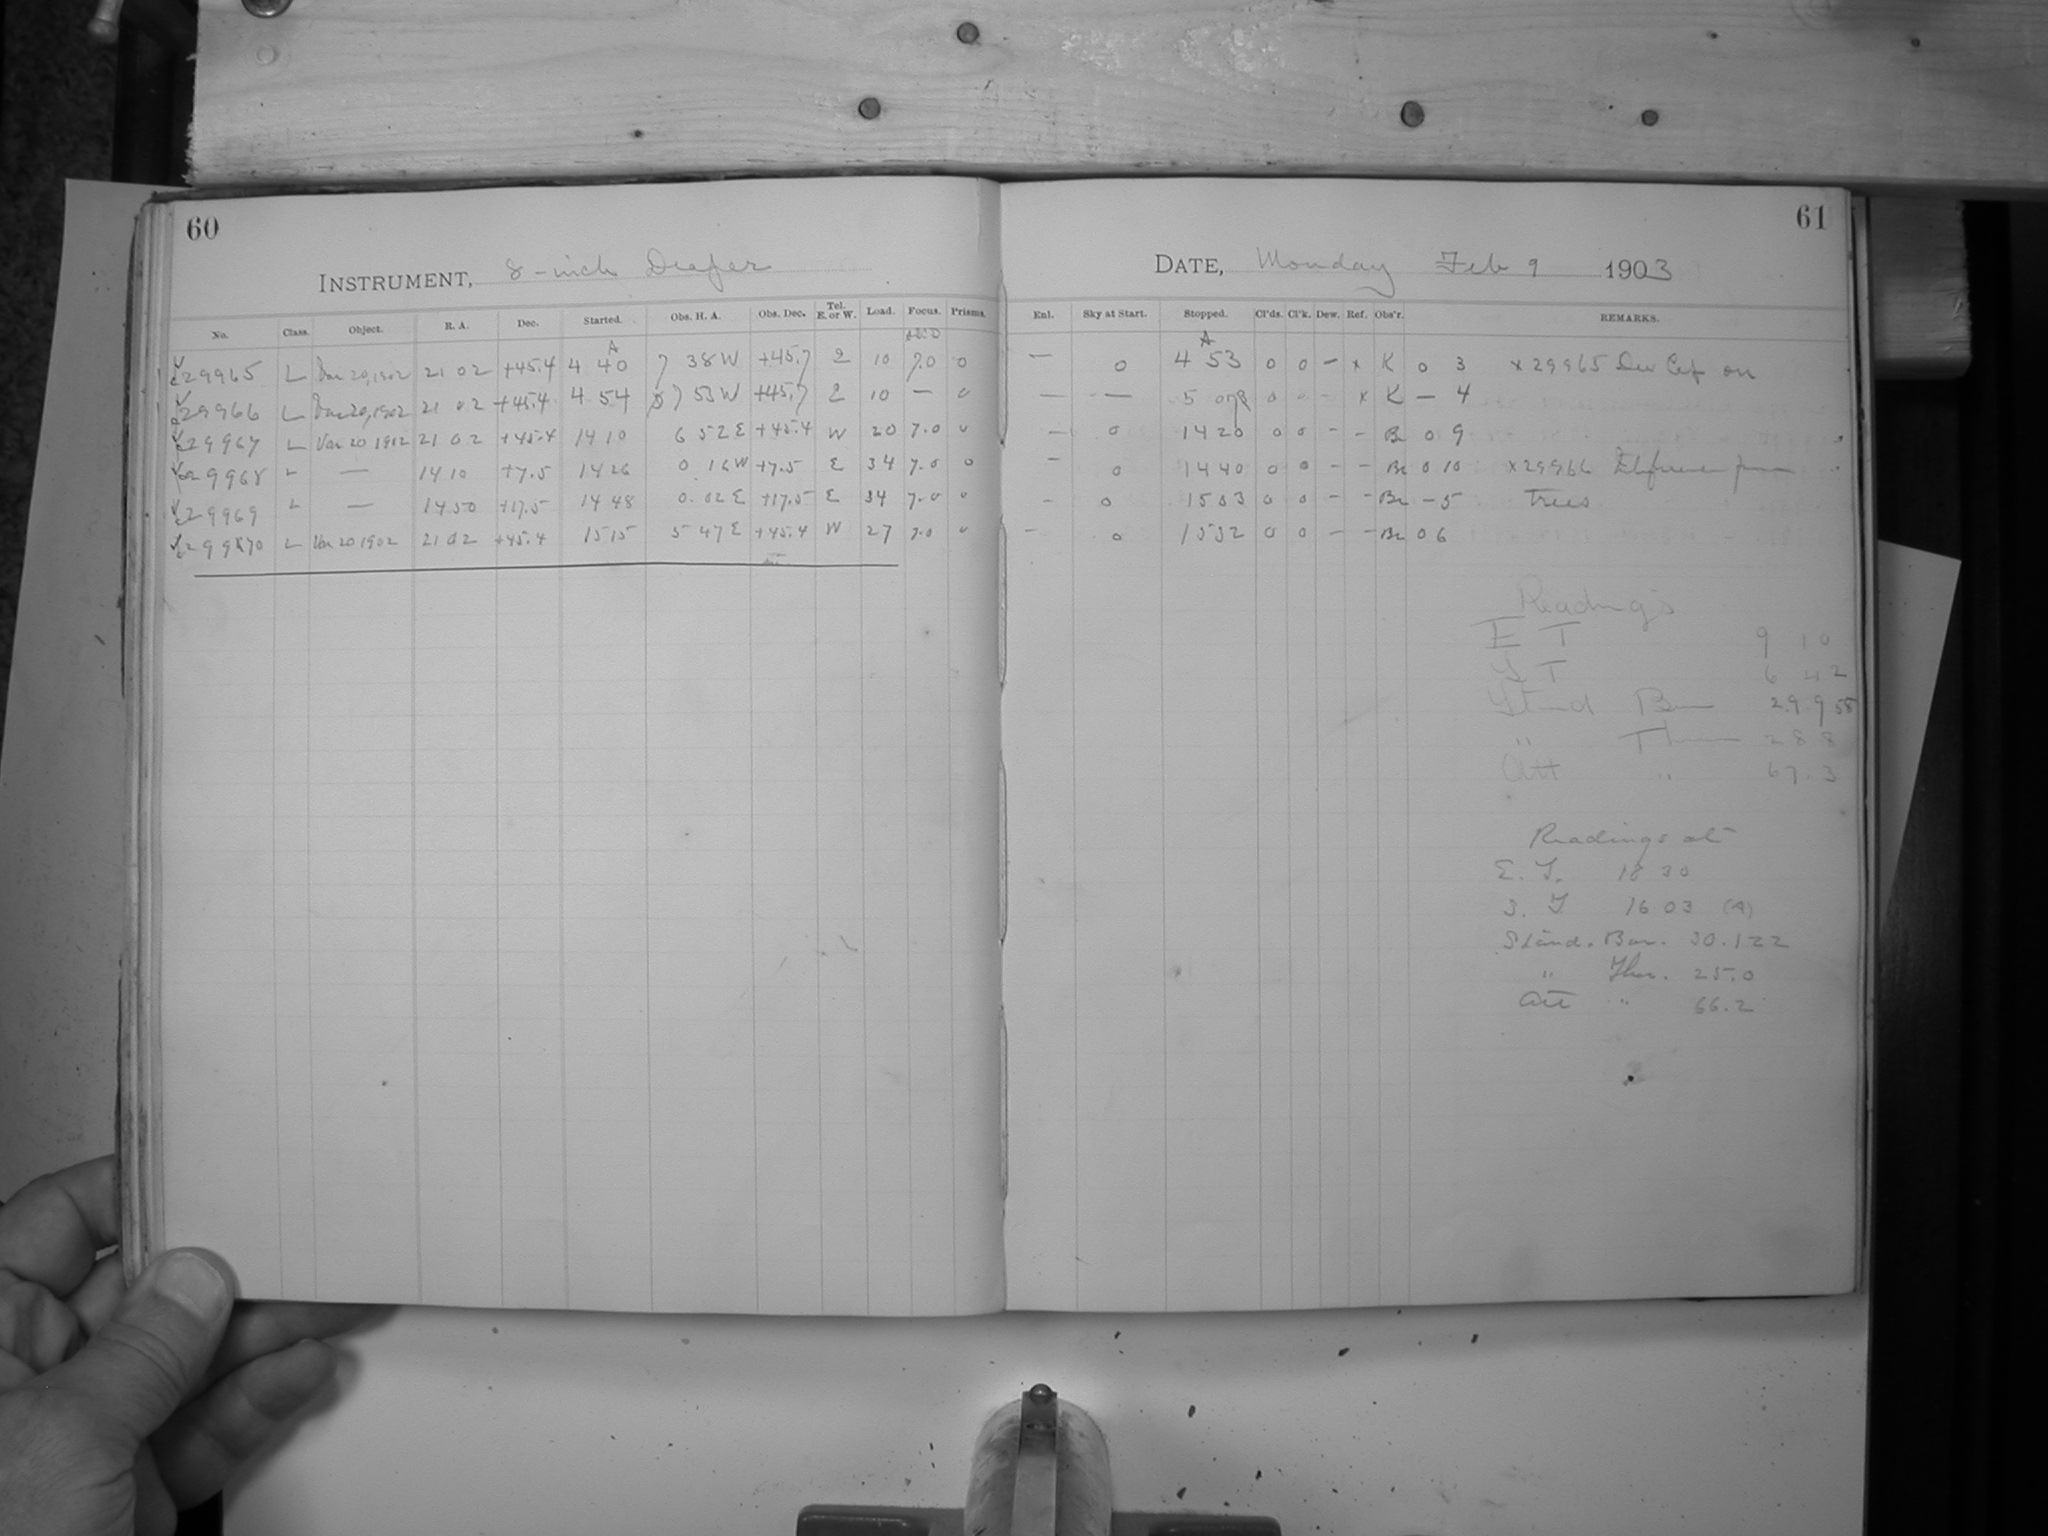 60
INSTRUMENT, 8-inch Draper
No. Class. Object. R. A. Dec. Started. Obs. H. A. Obs. Dec. Tel. E. or W. Load. Focus. Prisms.
29965 L Var 20, 1902 21 02 +45.4 4 40 7 38 W +45.7 E 10 7.0 0
29966 L Var 20, 1902 21 02 +45.4 4 54 7 53 W +45.7 E 10 — 0
29967 L Var 20 1902 21 02 +45.4 14 10 6 52 E +45.4 W 20 7.0 0
29968 L — 14 10 +7.5 14 26 0 16 W +7.5 E 34 7.0 0
29969 L — 14 50 +17.5 14 48 0.02 E +17.5 E 34 7.0 0
29970 L Var 20 1902 21 02 +45.4 15 15 5 47 E +45.4 W 27 7.0 0
61
DATE, Monday Feb 9 1903
Enl. Sky at Start. Stopped. Cl'ds. Cl'k. Dew. Ref. Obs'r. REMARKS.
A
— 0 4 53 0 0 – x K 0 3 x 29965 Dew Cap on
— — 5 0 0 – x K – 4
— 0 14 20 0 0 – – Br 0 9
– 0 14 40 0 0 – – Br 0 10 x 29966 from
– 0 15 03 0 0 – – Br – 5 trees
– 0 15 32 0 0 – – Br 0 6
Readings
E T 9 10
S T 6 42
Stand Bar 29.958
" Ther 28 8
Att " 67.3
Readings at
E. T. 18 30
S. T 16 03 (A)
Stand. Bar. 30.122
" Ther. 25.0
Att " 66.2